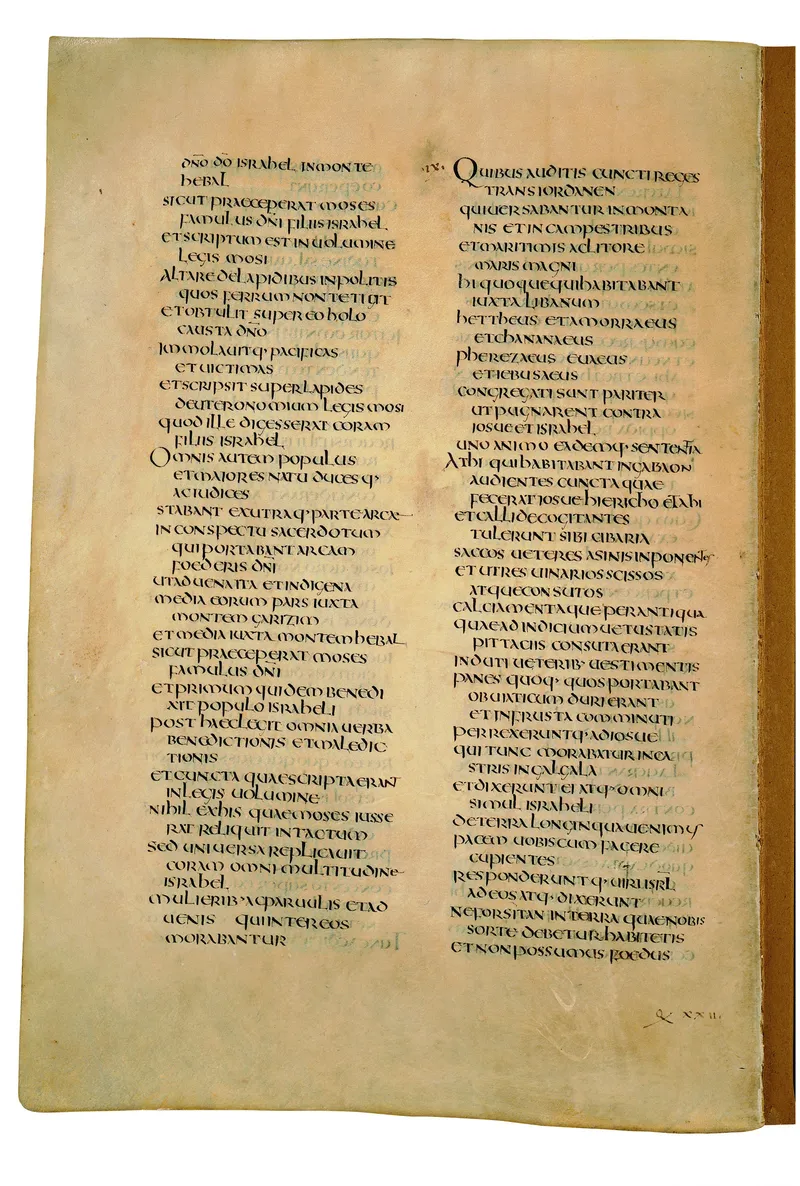 dn̄o dō israhel in monte
hebal
sicut praeceperat moses
famulus dn̄i filiis israhel
et scriptum est in uolumine
legis mosi
altare de lapidibus inpolitis
quos ferrum non tetigit
et obtulit super eo holo
causta dn̄o
immolauitq· pacificas
et uictimas
et scripsit super lapides
deuteronomium legis mosi
quod ille digesserat coram
filiis israhel
Omnis autem populus
et maiores natu duces q·
ac iudices
stabant ex utraq· parte arcae
in conspectu sacerdotum
qui portabant arcam
foederis dn̄i
ut aduena ita et indigena
media eorum pars iuxta
montem garizim
et media iuxta montem hebal
sicut praeceperat moses
famulus dn̄i
et primum quidem benedi
xit populo israheli
post haec legit omnia uerba
benedictionis et maledic
tionis
et cuncta quae scripta erant
in legis uolumine
nihil ex his quae moses iusse
rat reliquit intactum
sed uniuersa replicauit
coram omni multitudine
israhel
mulierib· ac paruulis et ad
uenis qui inter eos
morabantur
.ix. Quibus auditis cuncti reges
trans iordanen
qui uersabantur in monta
nis et in campestribus
et maritimis ac litore
maris magni
hi quoque qui habitabant
iuxta libanum
hettheus et amorraeus
et chananaeus
pherezaeus euaeus
et iebusaeus
congregati sunt pariter
ut pugnarent contra
iosue et israhel
uno animo eademq· sententia
at hi qui habitabant in gabaon
audientes cuncta quae
fecerat iosue hiericho et ahi
et callide cogitantes
tulerunt sibi cibaria
saccos ueteres asinis inponentes
et utres uinarios scissos
atque consutos
calciamentaque perantiqua
quae ad indicium uetustatis
pittaciis consuta erant
induti ueterib· uestimentis
panes quoq· quos portabant
ob uiaticum duri erant
et in frusta comminuti
perrexeruntq· ad iosue
qui tunc morabatur in ca
stris in galgala
et dixerunt ei atq· omni
simul israheli
de terra longinqua uenimus
pacem uobiscum facere
cupientes
responderuntq· uiri isrl̄
ad eos atq· dixerunt
ne forsitan in terra quae nobis
sorte debetur habitetis
et non possumus foedus
q xxii